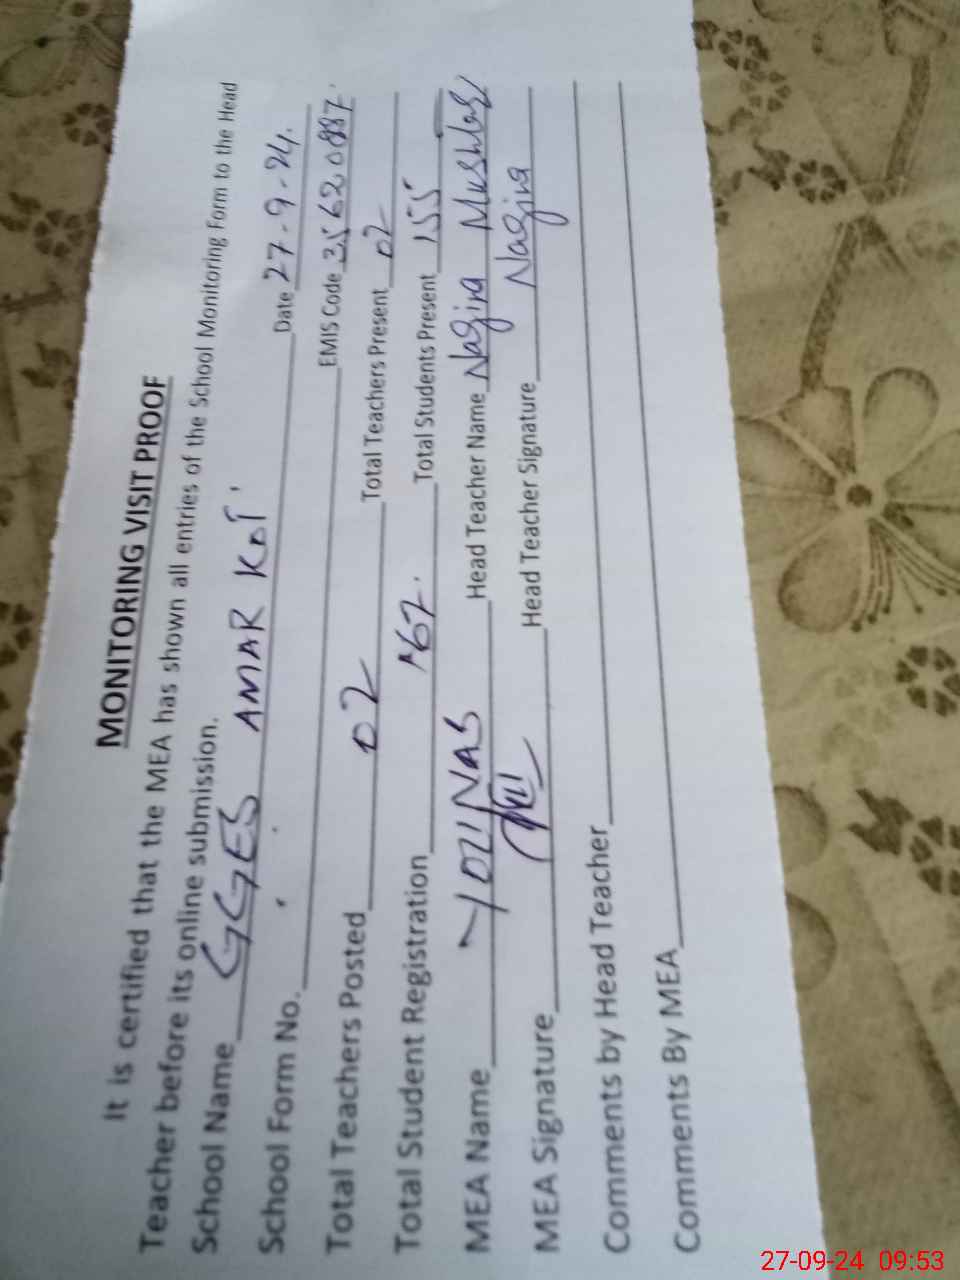 MONITORING VISIT PROOF
It is certified that the MEA has shown all entries of the School Monitoring Form to the Head
Teacher before its online submission.
School Name GGES AMAR KOT Date 27-9-24.
School Form No. EMIS Code 35620887
Total Teachers Posted 02 Total Teachers Present 02
Total Student Registration 167 Total Students Present 155
MEA Name Head Teacher Name Nagina Mushtaq
MEA Signature Head Teacher Signature Nagina
Comments by Head Teacher
Comments By MEA
27-09-24 09:53